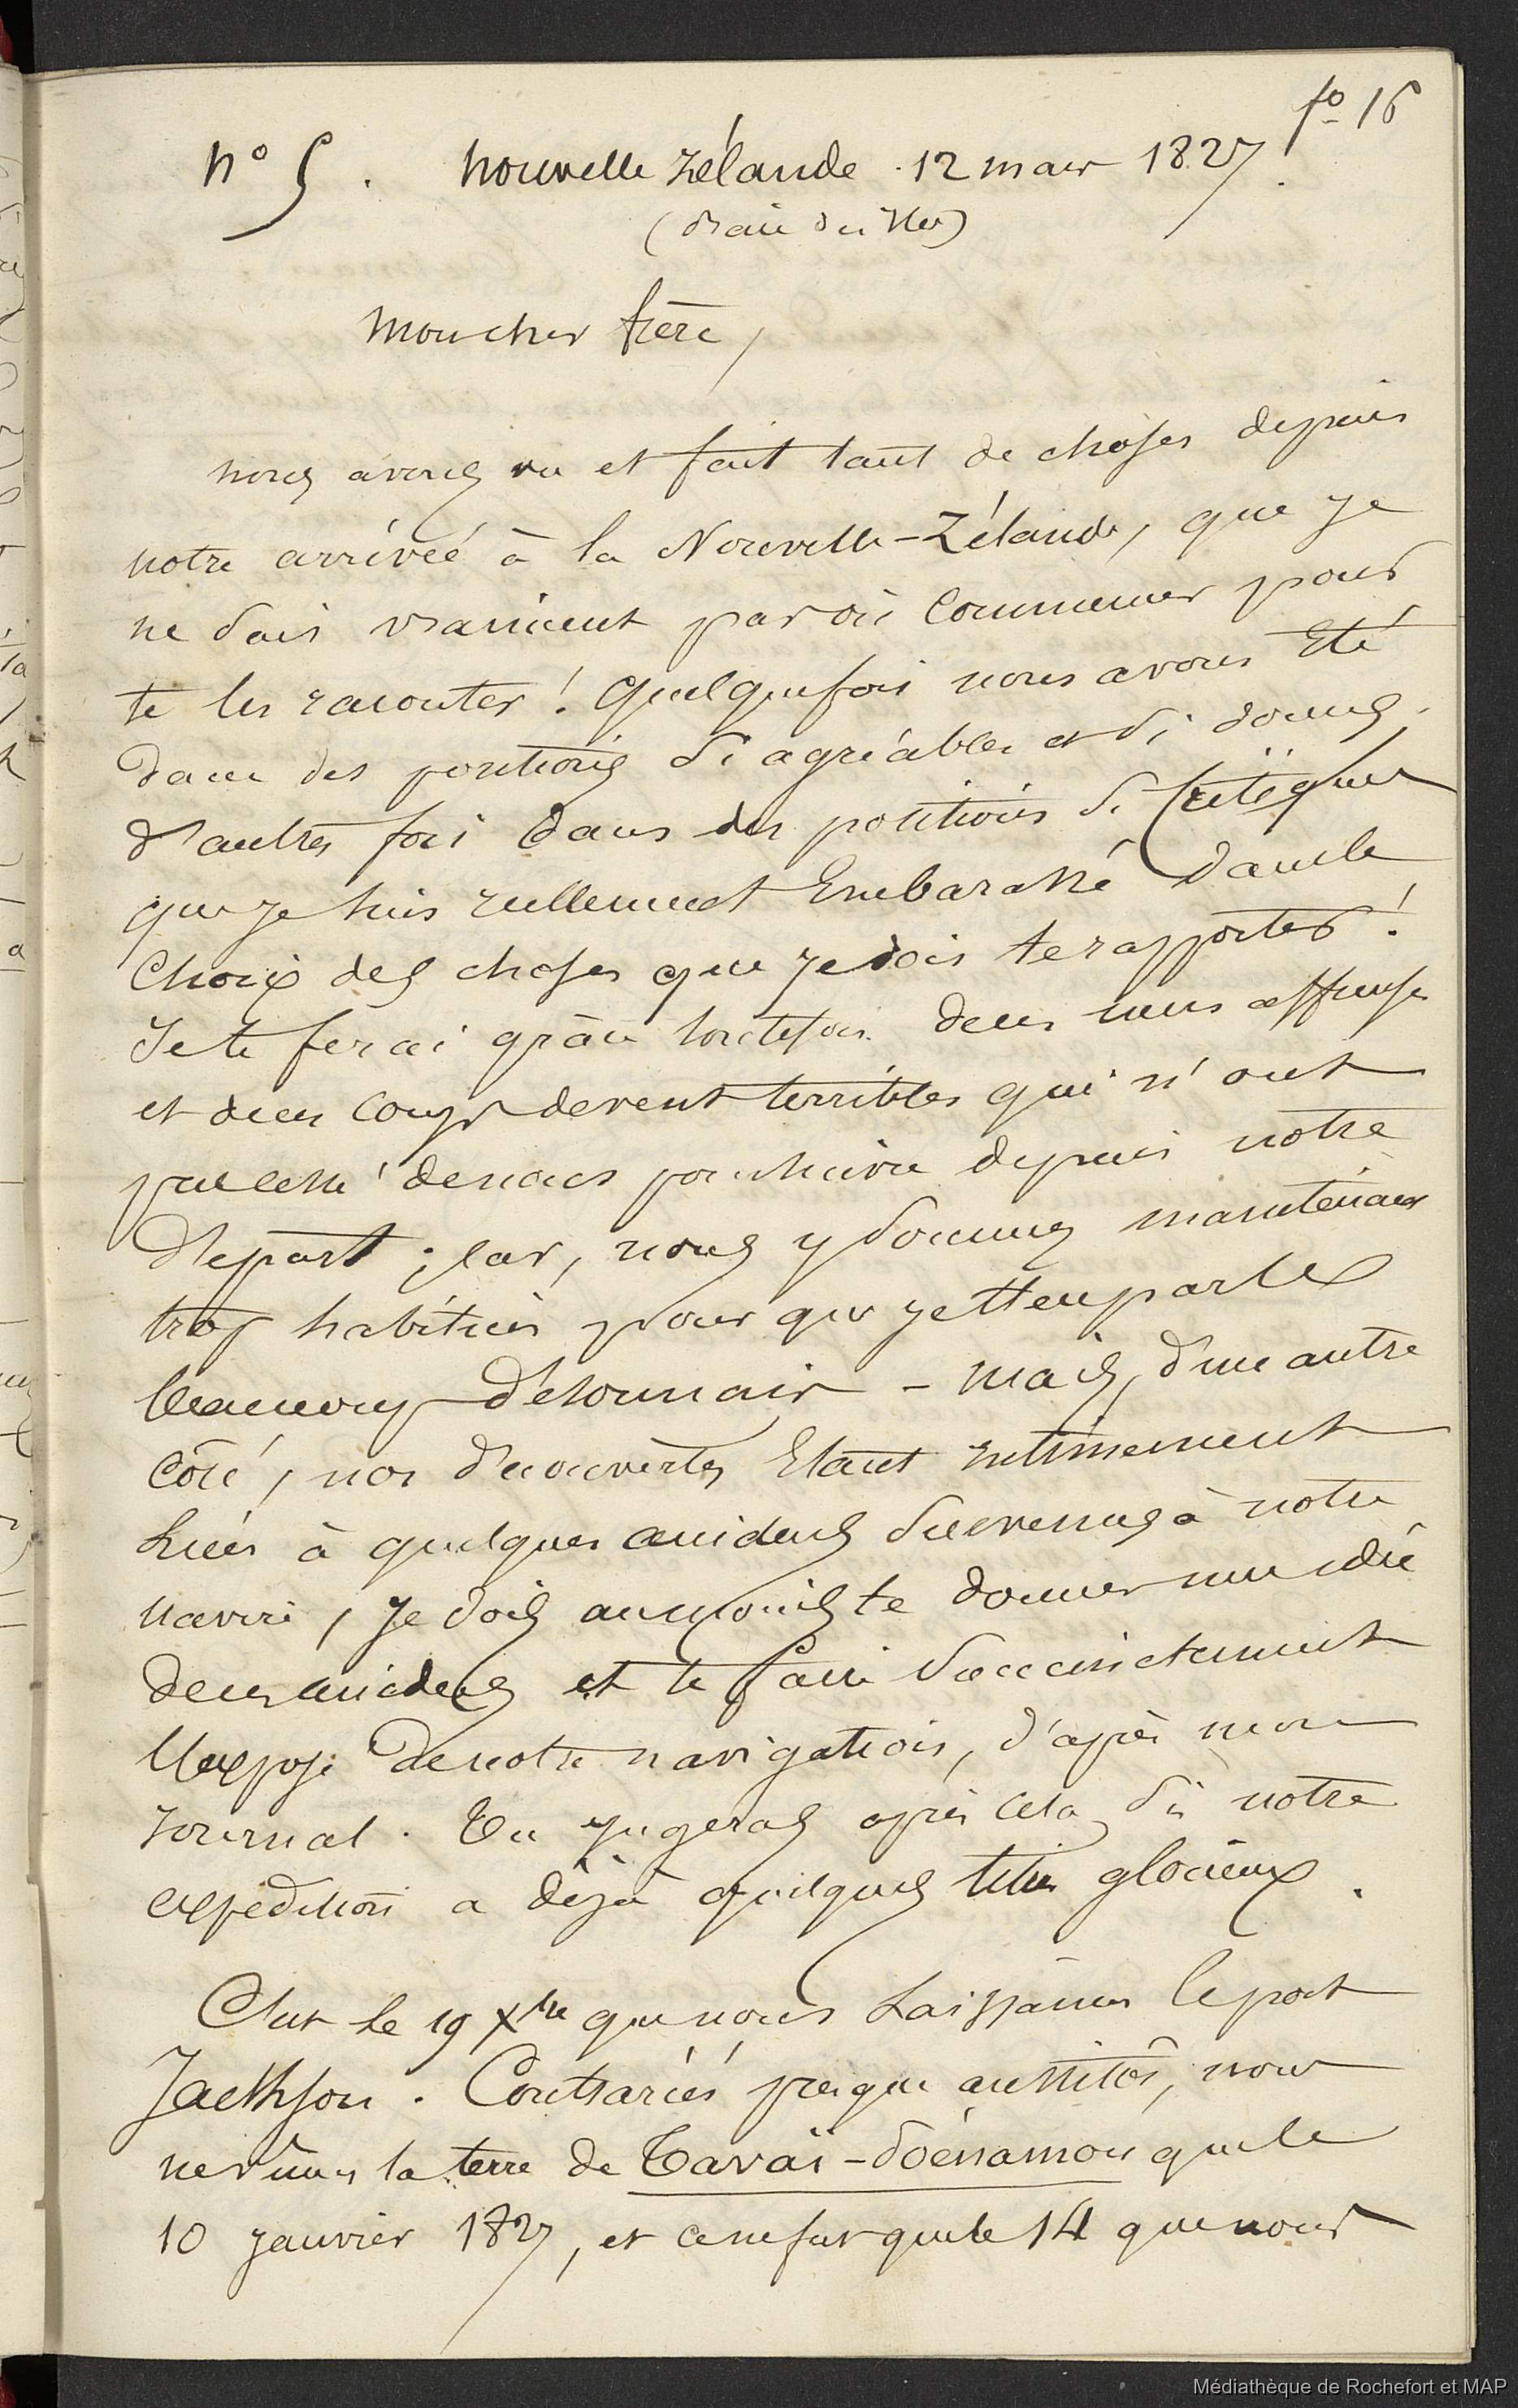 fo 16
No 5. Nouvelle Zélande. 12 mars 1827.
(Baie des Iles)
Mon cher frère,
nous avons vu et fait tant de choses depuis
notre arrivée à la Nouvelle-Zélande, que je
ne sais vraiment par où commencer pour
te les raconter ! Quelquefois nous avons été
dans des positions si agréables et si douces,
d'autres fois dans des positions si critiques
que je suis réellement embarassé dans le
choix des choses que je dois te rapporter !
Je te ferai grâce toutefois de ces mers affreuses
et de ces coups de vent terribles qui n'ont
pas cessé de nous poursuivre depuis notre
départ ; car, nous y sommes maintenant
trop habitués pour que je t'en parle
beaucoup désormais - mais, d'une autre
côté, nos découvertes étant intimement
liées à quelques accidens survenus à notre
navire, je dois au moins te donner une idée
de ces accidens et te faire succinctement
l'exposé de notre navigation, d'après mon
journal. Tu jugeras après cela si notre
expédition a déjà quelques titres glorieux.
C'est le 19 Xbre que nous laissâmes le port
Jackson. Contrariés presque aussitôt, nous
ne vîmes la terre de Tavaï-Poénamou que le
10 janvier 1827, et ce ne fut que le 14 que nous
Médiathèque de Rochefort et MAP